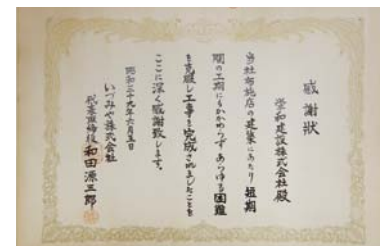 感謝状
栄和建設株式会社殿
当社布施店の建築にあたり短期
間の工期にもかかわらずあらゆる困難
を克服し工事を完成されましたことを
ここに深く感謝致します。
昭和三十九年六月五日
いづみや株式会社
代表取締役 和田源三郎